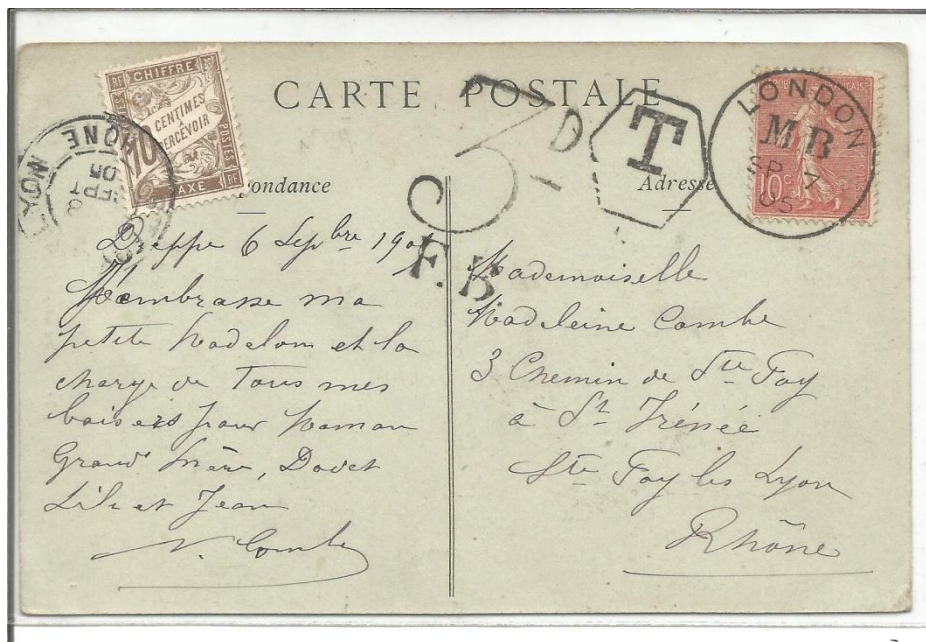 CARTE POSTALE
RF CHIFFRE
POSTES
10 CENTIMES
A PERCEVOIR
POSTES
TAXE RF
LYON RHONE
8
SEPT
05
3D
F.B
T
LONDON
MB
SP 7
05
10 c
pondance
Adresse
Dieppe 6 Sepbre 190
J'embrasse ma
petite Madelon et la
charge de tous mes
baisers pour Maman
Grand'Mère,
Lili et Jean
Combe
Mademoiselle
Madeleine Combe
3 Chemin de Ste Foy
à St Irénée
Ste Foy les Lyon
Rhône